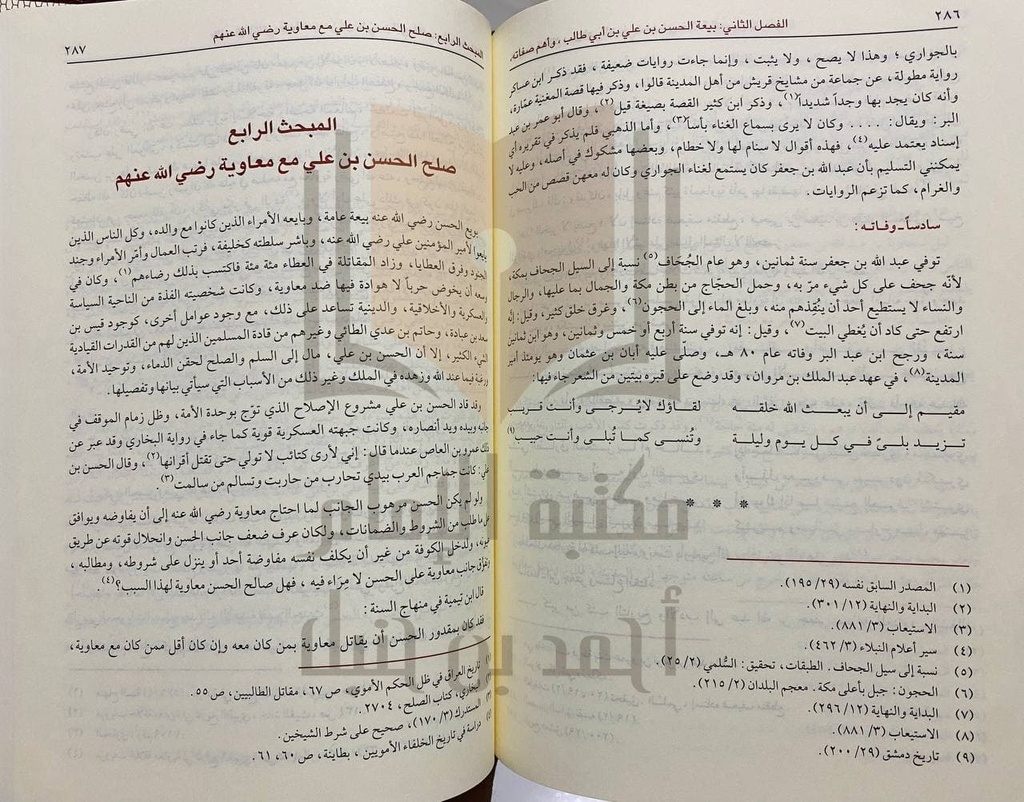 ٢٨٦
الفصل الثاني: بيعة الحسن بن علي بن أبي طالب، وأهم صفاته
بالجواري ؛ وهذا لا يصح ، ولا يثبت ، وإنما جاءت روايات ضعيفة ، فقد ذكر ابن عساكر
رواية مطولة، عن جماعة من مشايخ قريش من أهل المدينة قالوا، وذكر فيها قصة المغنية عمّارة،
وأنه كان يجد بها وجداً شديداً(١)، وذكر ابن كثير القصة بصيغة قيل(٢)، وقال أبو عمر بن عبد
البر: ويقال: .... وكان لا يرى بسماع الغناء بأساً(٣)، وأما الذهبي فلم يذكر في تقريره أي
إسناد يعتمد عليه(٤)، فهذه أقوال لا سنام لها ولا خطام، وبعضها مشكوك في أصله، وعليه لا
يمكنني التسليم بأن عبد الله بن جعفر كان يستمع لغناء الجواري وكان له معهن قصص من الحب
والغرام، كما تزعم الروايات.
سادساً ـ وفاته:
توفي عبد الله بن جعفر سنة ثمانين، وهو عام الجُحَاف(٥) نسبة إلى السيل الجحاف بمكة،
لأنّه جحف على كل شيء مرّ به، وحمل الحجّاج من بطن مكة والجمال بما عليها، والرجال
والنساء لا يستطيع أحد أن يُنقِذهم منه، وبلغ الماء إلى الحجون(٦)، وغرق خلق كثير، وقيل: إنَّه
ارتفع حتى كاد أن يُغطي البيت(٧)، وقيل: إنه توفي سنة أربع أو خمس وثمانين، وهو ابن ثمانين
سنة، ورجح ابن عبد البر وفاته عام ٨٠ هـ، وصلى عليه أبان بن عثمان وهو يومئذ أمير
المدينة(٨)، في عهد عبد الملك بن مروان، وقد وضع على قبره بيتين من الشعر جاء فيها:
مقيم إلى أن يبعث الله خلقه لقاؤك لا يُرجى وأنت قريب
تزيد بلىً في كل يوم وليلة وتُنسى كما تُبلى وأنت حبيب(٩)
* * *
(١) المصدر السابق نفسه (٢٩/ ١٩٥).
(٢) البداية والنهاية (١٢/ ٣٠١).
(٣) الاستيعاب (٣/ ٨٨١).
(٤) سير أعلام النبلاء (٣/ ٤٦٢).
(٥) نسبة إلى سيل الجحاف. الطبقات، تحقيق: السُّلمي (٢/ ٢٥).
(٦) الحجون: جبل بأعلى مكة. معجم البلدان (٢/ ٢١٥).
(٧) البداية والنهاية (١٢/ ٢٩٦).
(٨) الاستيعاب (٣/ ٨٨١).
(٩) تاريخ دمشق (٢٩/ ٢٠٠).
المبحث الرابع: صلح الحسن بن علي مع معاوية رضي الله عنهم
٢٨٧
المبحث الرابع
صلح الحسن بن علي مع معاوية رضي الله عنهم
بويع الحسن رضي الله عنه بيعة عامة، وبايعه الأمراء الذين كانوا مع والده، وكل الناس الذين
بايعوا لأمير المؤمنين علي رضي الله عنه، وباشر سلطته كخليفة، فرتب العمال وأمّر الأمراء وجند
الجنود وفرق العطايا، وزاد المقاتلة في العطاء مئة مئة فاكتسب بذلك رضاءهم(١)، وكان في
وسعه أن يخوض حرباً لا هوادة فيها ضد معاوية، وكانت شخصيته الفذة من الناحية السياسة
والعسكرية والأخلاقية، والدينية تساعد على ذلك، مع وجود عوامل أخرى، كوجود قيس بن
سعد بن عبادة، وحاتم بن عدي الطائي وغيرهم من قادة المسلمين الذين لهم من القدرات القيادية
الشيء الكثير، إلا أن الحسن بن علي، مال إلى السلم والصلح لحقن الدماء، وتوحيد الأمة،
ورغبة فيما عند الله وزهده في الملك وغير ذلك من الأسباب التي سيأتي بيانها وتفصيلها.
وقد قاد الحسن بن علي مشروع الإصلاح الذي توّج بوحدة الأمة، وظل زمام الموقف في
جانبه وبيده ويد أنصاره، وكانت جبهته العسكرية قوية كما جاء في رواية البخاري وقد عبر عن
ذلك عمرو بن العاص عندما قال: إني لأرى كتائب لا تولي حتى تقتل أقرانها(٢)، وقال الحسن بن
علي: كانت جماجم العرب بيدي تحارب من حاربت وتسالم من سالمت(٣).
ولو لم يكن الحسن مرهوب الجانب لما احتاج معاوية رضي الله عنه إلى أن يفاوضه ويوافق
على ما طلب من الشروط والضمانات، ولكان عرف ضعف جانب الحسن وانحلال قوته عن طريق
عيونه، ولدخل الكوفة من غير أن يكلف نفسه مفاوضة أحد أو ينزل على شروطه، ومطالبه،
جانب معاوية على الحسن لا مِراء فيه ، فهل صالح الحسن معاوية لهذا السبب؟(٤)
قال ابن تيمية في منهاج السنة:
فقد كان بمقدور الحسن أن يقاتل معاوية بمن كان معه وإن كان أقل ممن كان مع معاوية،
(١) تاريخ العراق في ظل الحكم الأموي، ص ٦٧، مقاتل الطالبيين، ص ٥٥.
(٢) البخاري، كتاب الصلح، ٢٧٠٤.
(٣) المستدرك (٣/ ١٧٠)، صحيح على شرط الشيخين.
(٤) دراسة في تاريخ الخلفاء الأمويين، بطاينة، ص ٦٠، ٦١.
مكتبة الإمام
أحمد بن حنبل